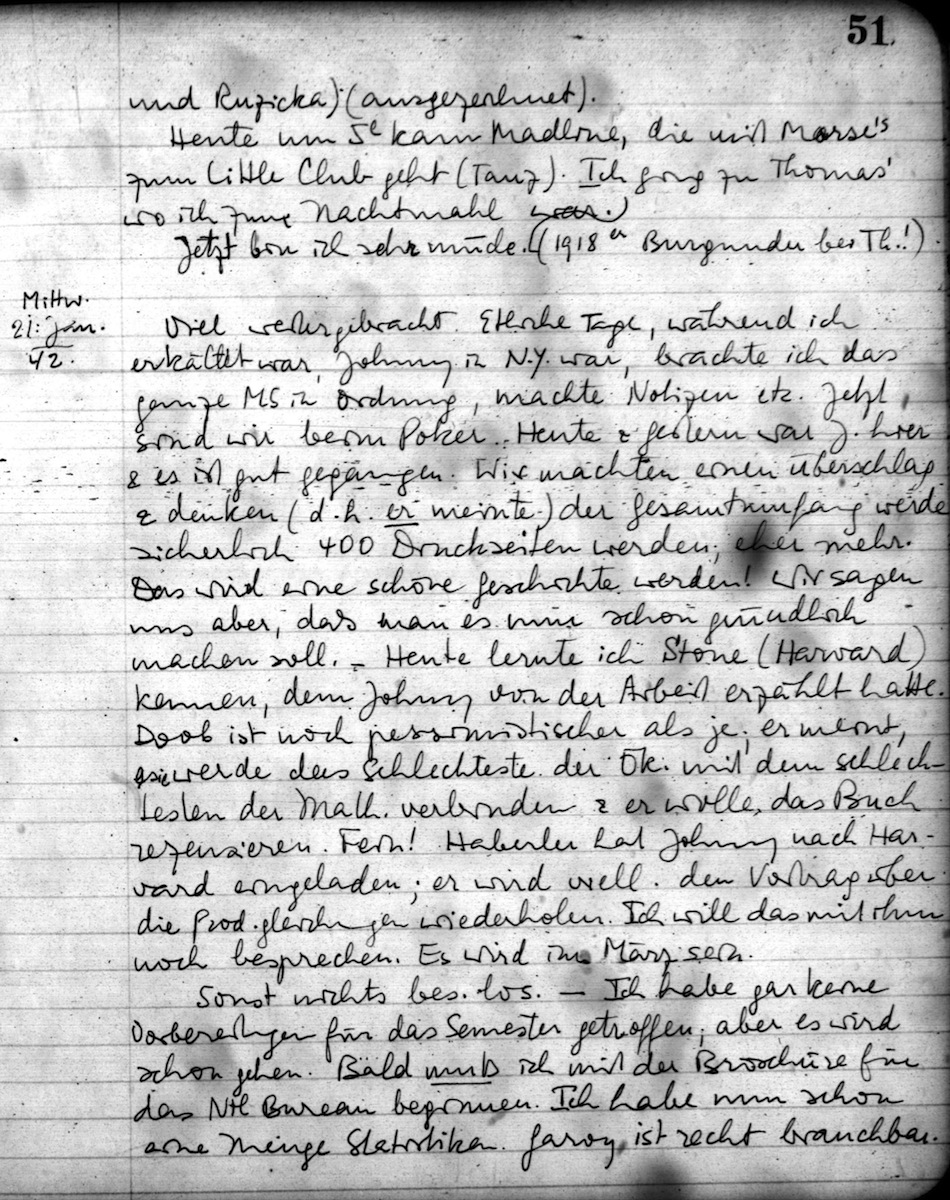 51.
und Ruzicka) (ausgezeichnet).
Heute um 5h kam Madlone, die mit Morse's
zum Little Club geht (Tanz). Ich ging zu Thomas'
wo ich zum Nachtmahl war.
Jetzt bin ich sehr müde. (1918er Burgunder bei Th.!)
Mittw.
21. Jan.
42.
Viel weitergebracht. Etliche Tage, während ich
erkältet war, Johnny in N.Y. war, brachte ich das
ganze MS in Ordnung, machte Notizen etc. Jetzt
sind wir beim Poker. Heute & gestern war J. hier
& es ist gut gegangen. Wir machten einen Überschlag
& denken (d.h. er meinte) der Gesamtumfang werde
sicherlich 400 Druckseiten werden, eher mehr.
Das wird eine schöne Geschichte werden! Wir sagen
uns aber, dass man es nun schon gründlich
machen soll. – Heute lernte ich Stone (Harward)
kennen, dem Johnny von der Arbeit erzählt hatte.
Doob ist noch pessimistischer als je; er meint,
sie werde das Schlechteste der Ök. mit dem schlech-
testen der Math. verbinden & er wolle das Buch
rezensieren. Fein! Haberler hat Johnny nach Har-
vard eingeladen; er wird vell. den Vortrag über
die Prod.gleichungen wiederholen. Ich will das mit ihm
noch besprechen. Es wird im März sein.
Sonst nichts bes. los. – Ich habe gar keine
Vorbereitungen für das Semester getroffen, aber es wird
schon gehen. Bald muß ich mit der Broschüre für
das Ntl Bureau beginnen. Ich habe nun schon
eine Menge Statistiken. ist recht brauchbar.